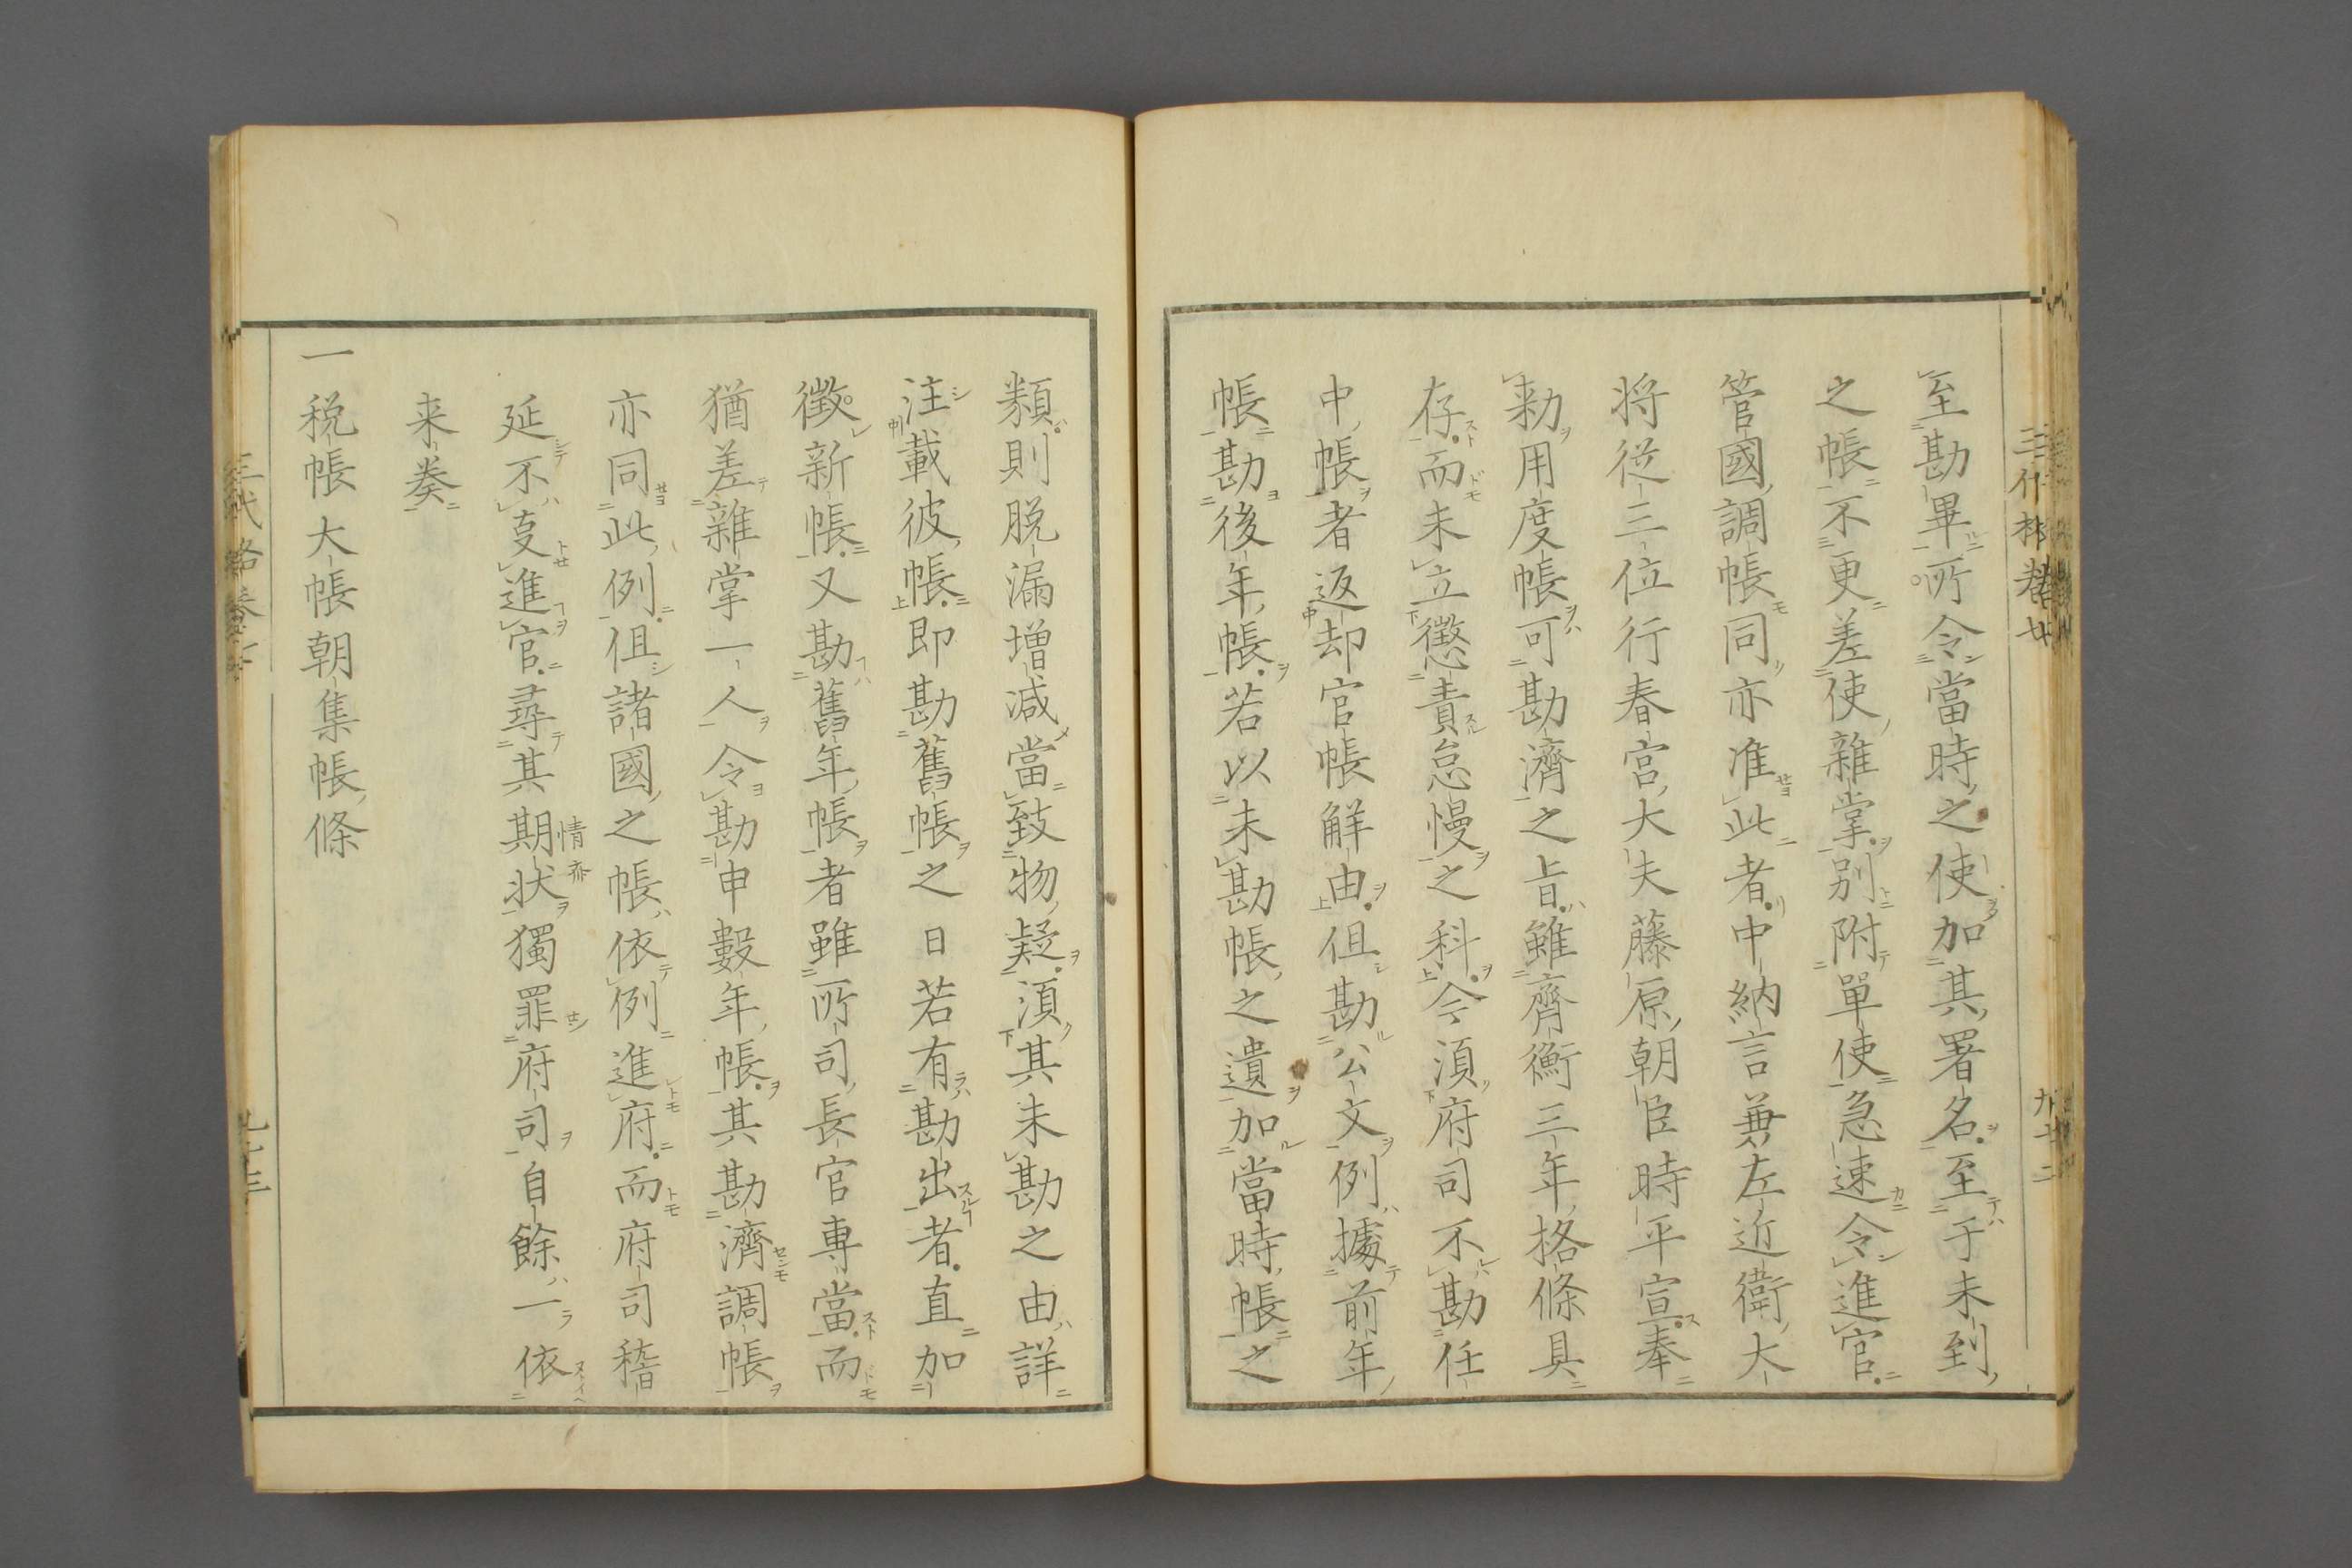 至勘畢所令當時之使加其署名至于未到
之帳不更差使雜掌別附單使急速令進官
管國調帳同亦准此者中納言兼左近衛大
将従三位行春宮大夫藤原朝臣時平宣奉
勑用度帳可勘濟之旨雖齊衡三年格條具
存而未立懲責怠慢之科今湏府司不勘任
中帳者返却官帳解由但勘公文例據前年
帳勘後年帳若以未勘帳之遺加當時帳之
類則脱漏増減當致物疑湏其未勘之由詳
注載彼帳即勘舊帳之日若有勘出者直加
徴新帳又勘舊年帳者雖所司長官專當而
猶差雜掌一人令勘申數年帳其勘濟調帳
亦同此例但諸國之帳依例進府而府司稽
延不㪅進官尋其期状獨罪府司自餘一依
来奏
一税帳大帳朝集帳條